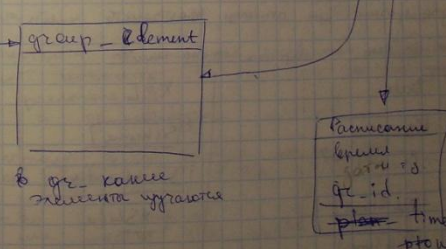 group_element
в gr_ какие
элементы изучаются
Расписание
время
gr_id.
plan
time
plan